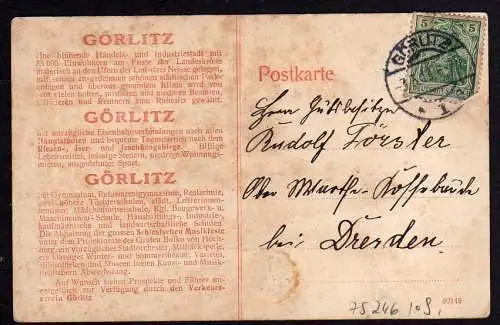 GÖRLITZ
Eine blühende Handels- und Industriestadt mit
85 000 Einwohnern am Fusse der Landeskrone
malerisch an den Ufern der Lausitzer Neisse gelegen,
mit seinen ausgedehnten schönen städtischen Park-
anlagen und überaus gesundem Klima wird von
von vielen hohen, pensionierten
Offizieren und Rentnern zum Ruhesitz gewählt.
GÖRLITZ
hat vorzügliche Eisenbahnverbindungen nach allen
Hauptstädten und bequeme Tagestouren nach dem
Riesen-, Iser- und Jeschkengebirge. Billige
Lebensmittel, solide Steuern, niedrige Wohnungs-
mieten, ausgedehnter Sport.
GÖRLITZ
hat Gymnasium, Reformrealgymnasium, Realschule,
höhere Töchterschulen, städt. Lehrerinnen-
seminar, Mädchenmittelschule, Kgl. Baugewerk- u.
Maschinenbau-Schule, Haushaltungs-, Industrie-,
kaufmännische und landwirtschaftliche Schulen.
Die Abhaltung der grossen Schlesischen Musikfeste
unter dem Protektorate des Grafen Bolko von Hoch-
berg, ein vorzügliches Stadtorchester, Musikzirkel,
ein gutes Winter- und Sommertheater, Varietés,
Museen bieten Kunst- und Musik-
liebhabern Abwechslung.
Auf Wunsch stehen Prospekte und Führer
zur Verfügung durch den Verkehrs-
verein Görlitz
Postkarte
5
5
GÖRLITZ
1
Herrn Gutsbesitzer
Rudolf Förster
Ober Wartha-Cossebaude
bei Dresden
80149
75246 10S.